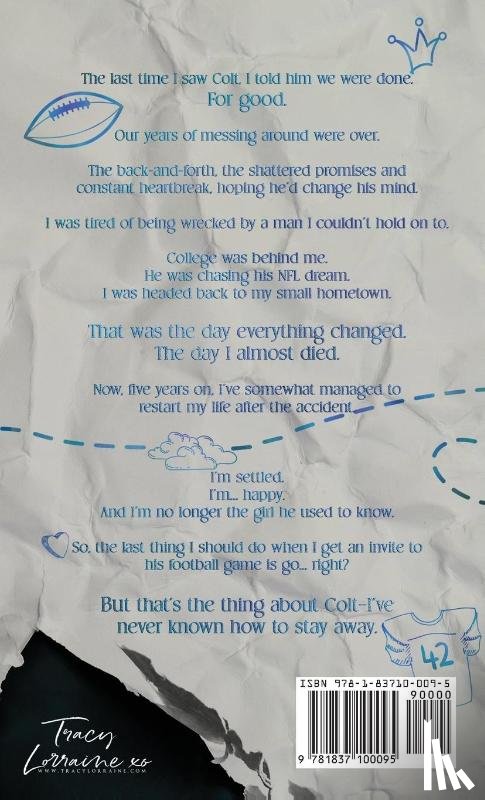 The last time I saw Colt, I told him we were done.
For good.
Our years of messing around were over.
The back-and-forth, the shattered promises and
constant heartbreak, hoping he'd change his mind.
I was tired of being wrecked by a man I couldn't hold on to.
College was behind me.
He was chasing his NFL dream.
I was headed back to my small hometown.
That was the day everything changed.
The day I almost died.
Now, five years on, I've somewhat managed to
restart my life after the accident.
I'm settled.
I'm... happy.
And I'm no longer the girl he used to know.
So, the last thing I should do when I get an invite to
his football game is go... right?
But that's the thing about Colt–I've
never known how to stay away.
42
ISBN 978-1-83710-009-5
90000
9 781837 100095
Tracy
Lorraine xo
WWW.TRACYLORRAINE.COM